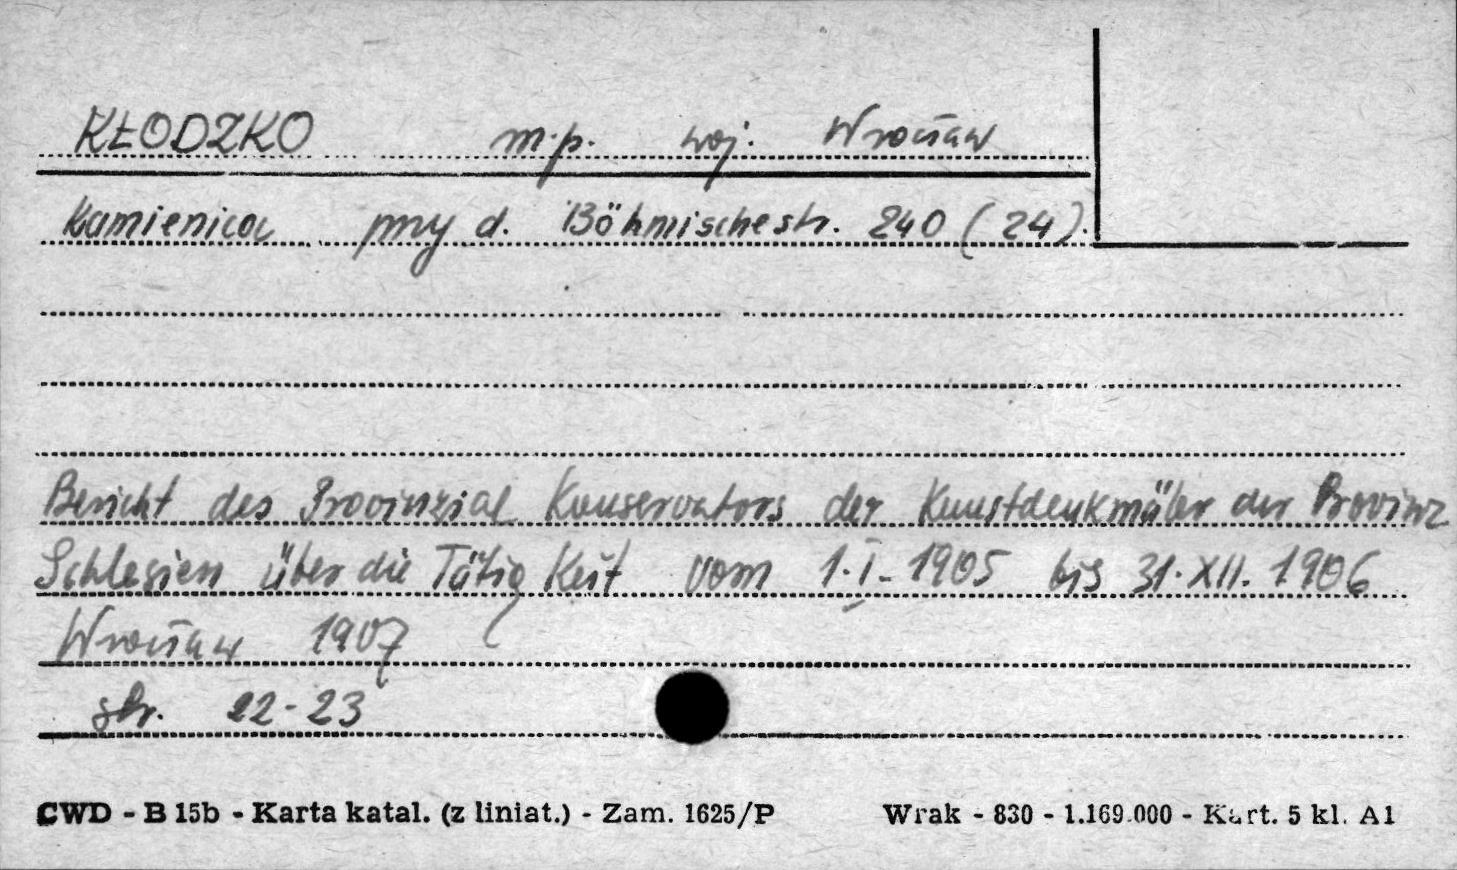 KŁODZKO m.p. woj. Wrocław
kamienica przy d. Böhmischestr. 240 (24).
Bericht des Provinzial Konservators der Kunstdenkmäler der Provinz
Schlesien über die Tätigkeit vom 1.I.1905 bis 31.XII.1906
Wrocław 1907
str. 22-23
CWD - B 15b - Karta katal. (z liniat.) - Zam. 1625/P Wrak - 830 - 1.169.000 - Kart. 5 kl. A1